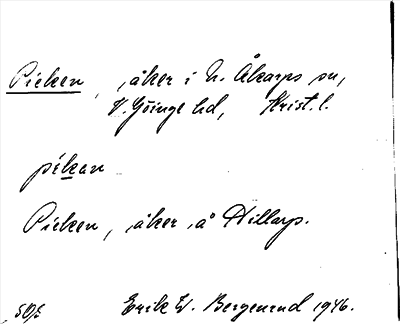 Pieken, åker i N. Åkarps sn,
V. Göinge hd, Krist. l.
pékan
Pieken, åker, å Hillarp.
Erik W. Bergenrud 1946.